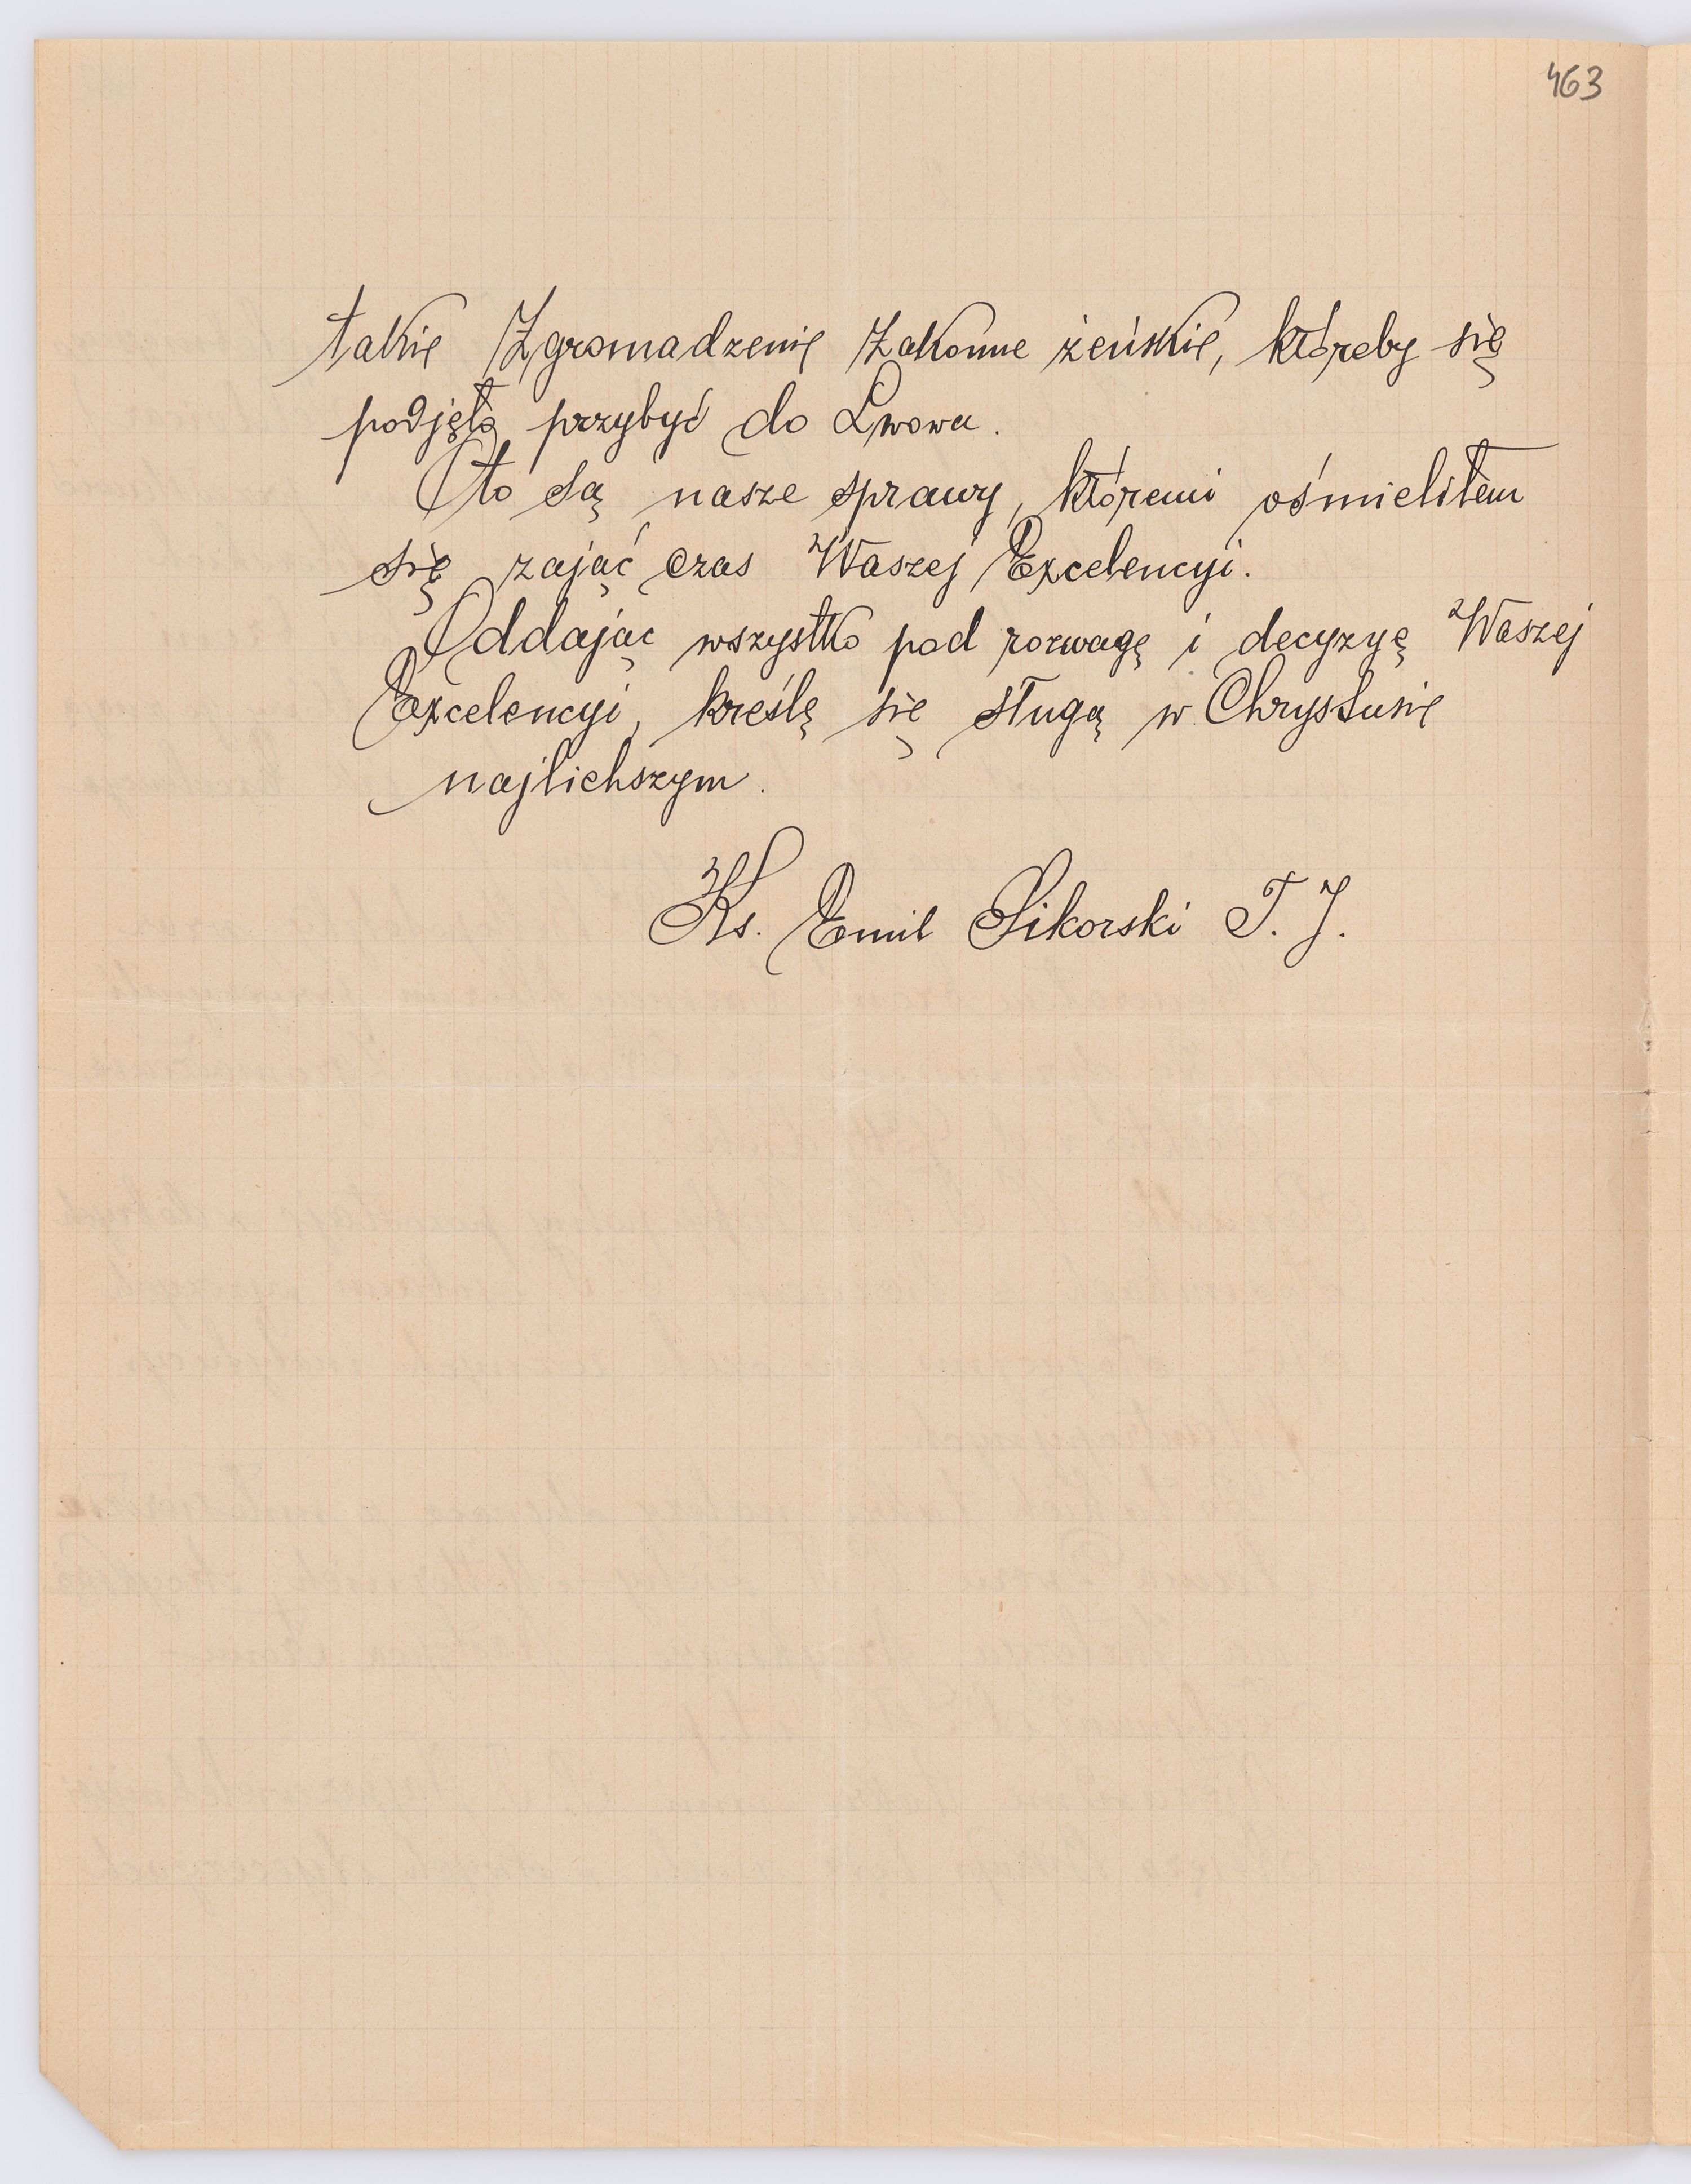 463
takie Zgromadzenie Zakonne żeńskie, któreby się
podjęło przybyć do Lwowa.
Oto są nasze sprawy, któremi ośmieliłem
się zająć czas Waszej Excelencyi.
Oddając wszystko pod rozwagę i decyzyę Waszej
Excelencyi, kreślę się sługą w Chrystusie
najlichszym.
Ks. Emil Sikorski T. J.